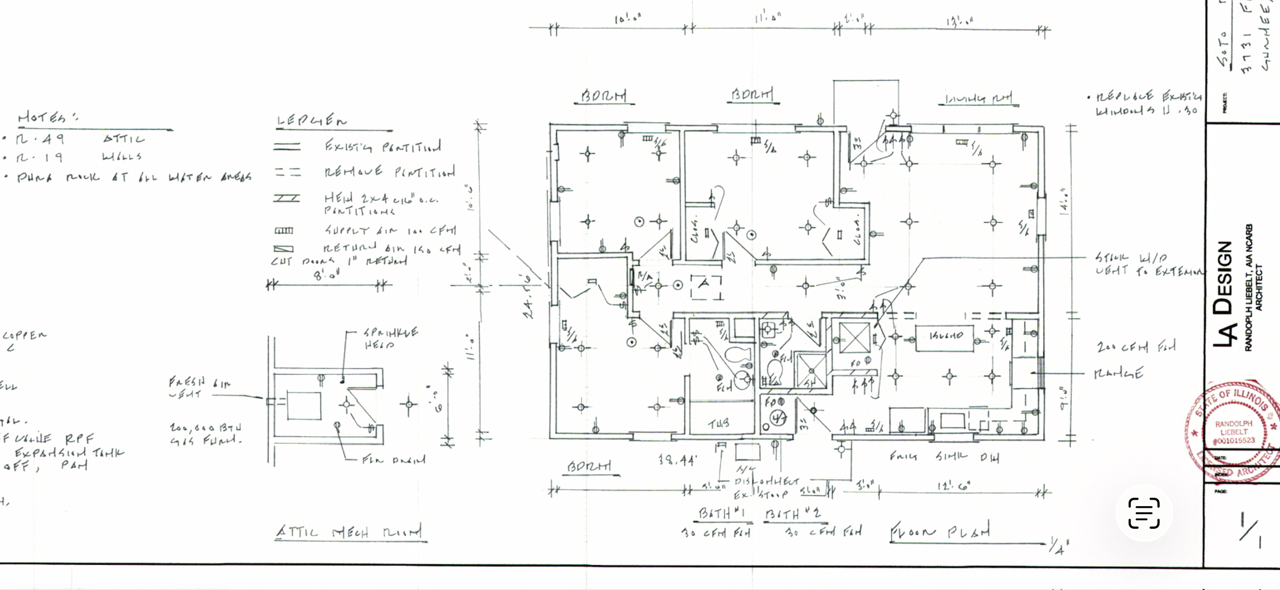 10'-0"
11'-0"
13'-0"
NOTES:
• R-49 ATTIC
• R-19 WALLS
• DURA ROCK AT ALL WATER AREAS
LEDGEN
EXISTIG PARTITION
REMOVE PARTITION
NEW 2x4 @ 16" O.C.
PARTITIONS
SUPPLY AIR 100 CFM
RETURN AIR 150 CFM
CUT DOORS 1" RETURN
8'-0"
BDRM
BDRM
LIVING RM
• REPLACE EXISTIG
WINDOWS U .30
CLOS.
CLOS.
14'-0"
11'-0"
9'-0"
STACK W/D
VENT TO EXTERIOR
200 CFM FAN
RANGE
ISLAND
TUB
FRIG SINK DW
BDRM
38.44'
A/C
DISCONNECT
EX. STOOP
3'-0"
12'-6"
BATH #1
30 CFM FAN
BATH #2
30 CFM FAN
FLOOR PLAN
1/4"
COPPER
SPRINKLE
HEAD
FRESH AIR
VENT
6'-0"
200,000 BTU
GAS FURN.
FLR DRAIN
ATTIC MECH ROOM
EXPANSION TANK
OFF, PAN
PROJECT:
SOTO
3731
GURNEE,
LA DESIGN
RANDOLPH LIEBELT, AIA NCARB
ARCHITECT
STATE OF ILLINOIS
RANDOLPH
LIEBELT
#001015523
LICENSED ARCHITECT
DATE:
PAGE:
1/1